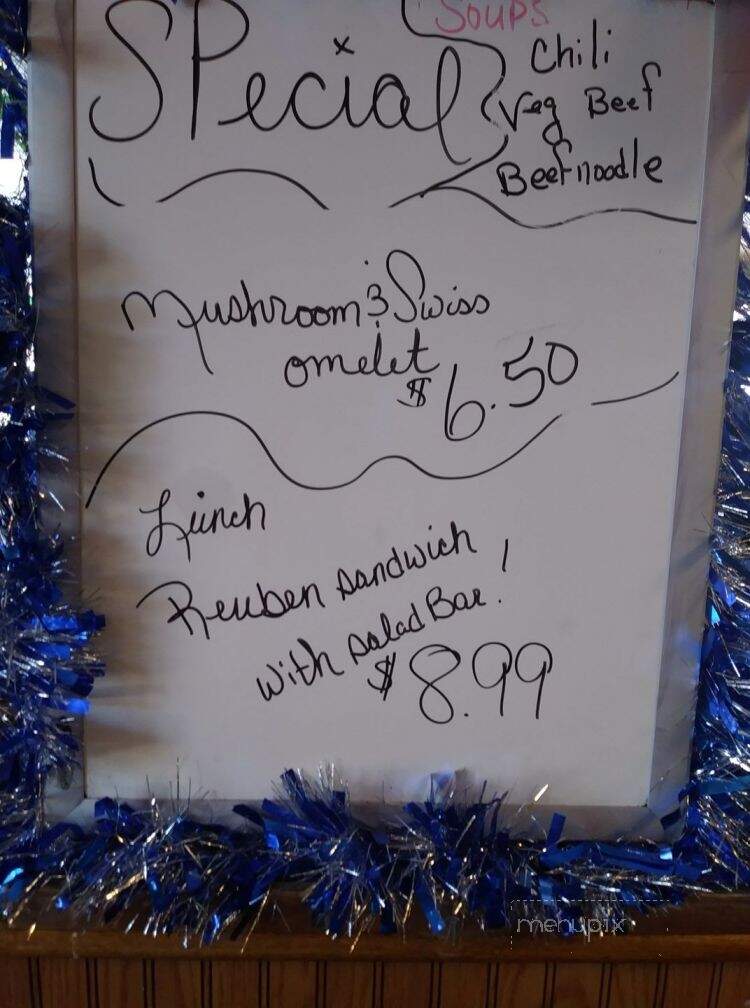 Soups
Special
Chili
Veg Beef
Beef noodle
Mushroom & Swiss
omelet
$6.50
Lunch
Reuben sandwich
with salad Bar!
$8.99
menupix